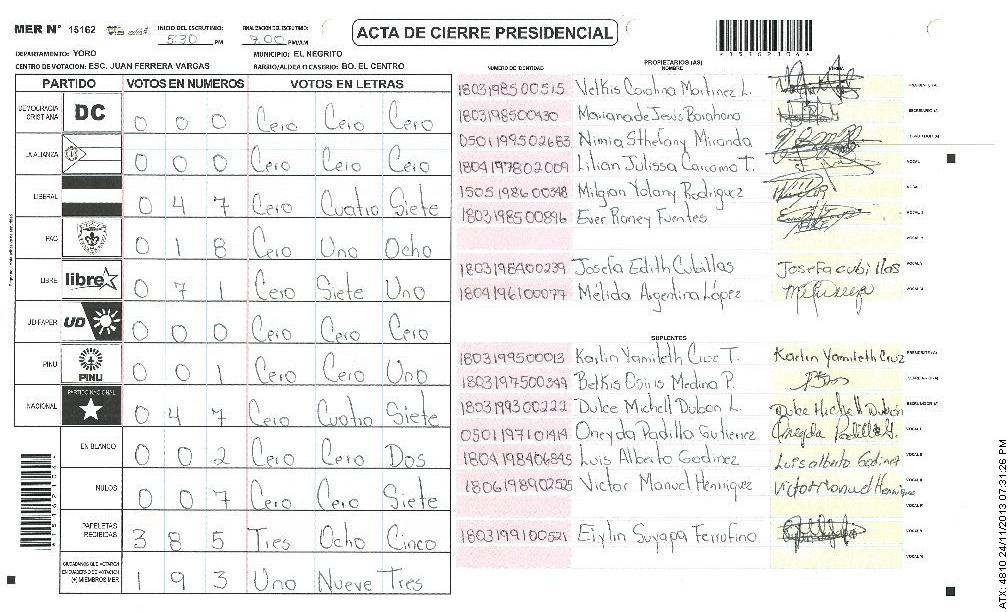 MER N° 15162
INICIO DEL ESCRUTINIO: 5:30 PM
FINALIZACION DEL ESCRUTINIO: 7:00 PM/AM
ACTA DE CIERRE PRESIDENCIAL
*15162104*
DEPARTAMENTO: YORO
MUNICIPIO: EL NEGRITO
CENTRO DE VOTACION: ESC. JUAN FERRERA VARGAS
BARRIO/ALDEA O CASERIO: BO. EL CENTRO
PARTIDO VOTOS EN NUMEROS VOTOS EN LETRAS
DEMOCRACIA CRISTIANA DC 0 0 0 Cero Cero Cero
LA ALIANZA 0 0 0 Cero Cero Cero
LIBERAL 0 4 7 Cero Cuatro Siete
PAC 0 1 8 Cero Uno Ocho
LIBRE libre 0 7 1 Cero Siete Uno
UD FAPER UD 0 0 0 Cero Cero Cero
PINU PINU 0 0 1 Cero Cero Uno
NACIONAL PARTIDO NACIONAL 0 4 7 Cero Cuatro Siete
EN BLANCO 0 0 2 Cero Cero Dos
NULOS 0 0 7 Cero Cero Siete
PAPELETAS RECIBIDAS 3 8 5 Tres Ocho Cinco
CIUDADANOS QUE VOTARON EN CUADERNO DE VOTACION (+) MIEMBROS MER 1 9 3 Uno Nueve Tres
PROPIETARIOS (AS)
NUMERO DE IDENTIDAD NOMBRE FIRMA
1803198500515 Velkis Carolina Martinez L. PRESIDENTE (A)
1803198500430 Mariana de Jesus Barahona SECRETARIO (A)
0501199502683 Nimia Sthefany Miranda
1804197802009 Lilian Julissa Carcamo T. VOCAL
1505198600348 Milgian Yolany Rodriguez VOCAL
1803198500896 Ever Roney Fuentes VOCAL
VOCAL
1803198400239 Josefa Edith Cubillas Josefa cubillas VOCAL
1804196100077 Mélida Argentina López VOCAL
SUPLENTES
1803199500013 Karlin Yamileth Cruz T. Karlin Yamileth Cruz PRESIDENTE (A)
1803197500344 Belkis Osiris Medina P.
1803199300222 Dulce Michell Dubon L. Dulce Michell Dubón
0501197101414 Oneyda Padilla Gutierrez Oneyda Padilla G. VOCAL
1804198406845 Luis Alberto Godinez Luis alberto Godinez VOCAL
1806198902525 Victor Manuel Henriquez Victor Manuel Henriquez VOCAL
VOCAL
1803199100521 Eiylin Suyapa Ferrufino VOCAL
VOCAL
ATX: 4810 24/11/2013 07:31:26 PM